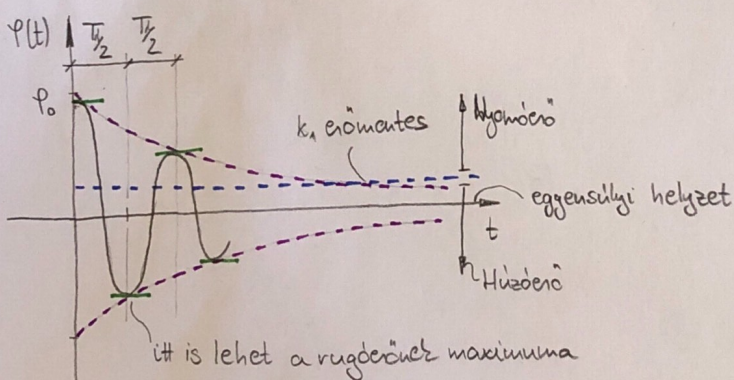 φ(t)
T/2 T/2
φ₀
k₁ erőmentes
Nyomóerő
egyensúlyi helyzet
t
Húzóerő
itt is lehet a rugóerőnek maximuma